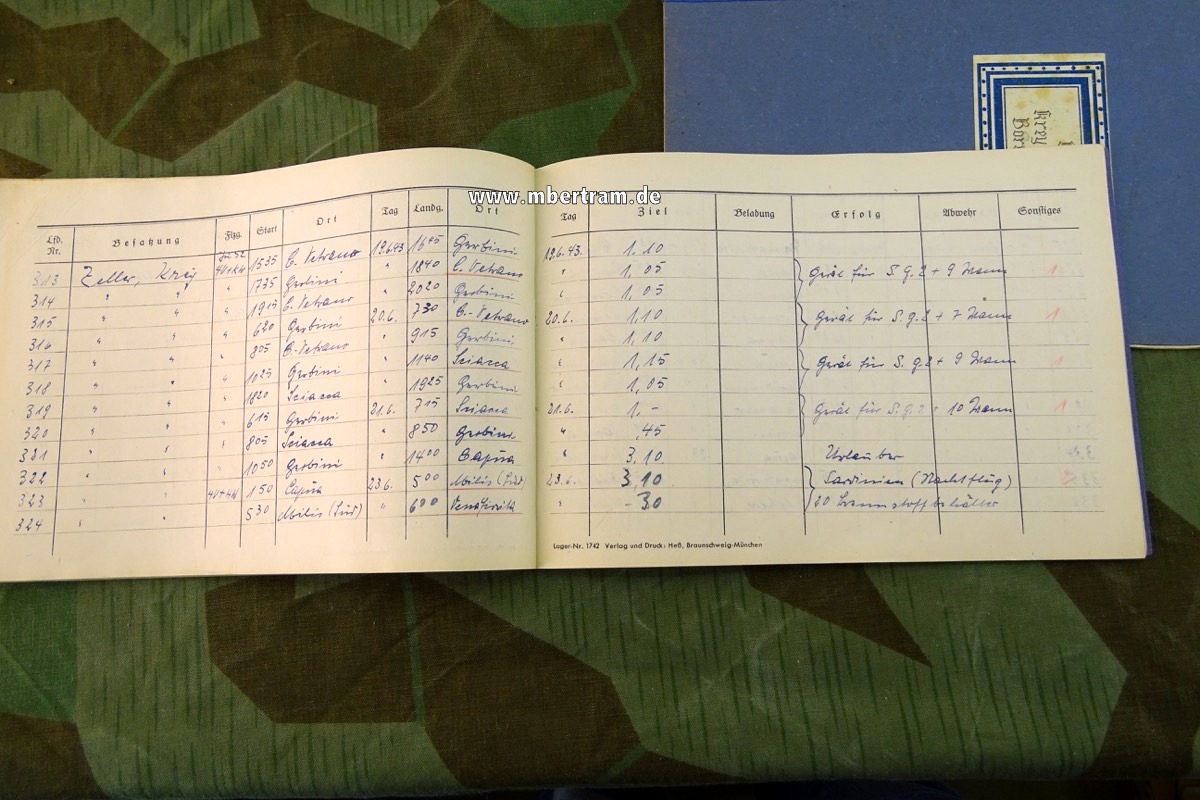 www.mbertram.de
Krey
Lfd. Nr. Besatzung Flzg. Start Ort Tag Landg. Ort Tag Ziel Beladung Erfolg Abwehr Sonstiges
313 Zeller, Krey 1535 C. Vetrano 19.6.43 1645 Gerbini 19.6.43. 1.10
314 " " " 1735 Gerbini " 1840 C. Vetrano " 1,05 Gerät für S.G.2 + 9 Mann 1
315 " " " 1915 C. Vetrano " 2020 Gerbini " 1,05
316 " " " 620 Gerbini 20.6. 730 C. Vetrano 20.6. 1.10 Gerät für S.G.2 + 7 Mann 1
317 " " " 805 C. Vetrano " 915 Gerbini " 1,10
318 " " " 1025 Gerbini " 1140 Sciacca " 1,15 Gerät für S.G.2 + 9 Mann 1
319 " " " 1820 Sciacca " 1925 Gerbini " 1,05
320 " " " 615 Gerbini 21.6. 715 Sciacca 21.6. 1.- Gerät für S.G.2 + 10 Mann 1
321 " " " 805 Sciacca " 850 Gerbini " ,45
322 " " " 1050 Gerbini " 1400 Capua " 3.10 Urlauber
323 " " 150 Capua 23.6. 500 Milis (Süd) 23.6. 3.10 Sardinien (Nachtflug)
324 " " 530 Milis (Süd) " 600 Venafiorita " -30 20 Brennstoffbehälter
Lager-Nr. 1742 Verlag und Druck: Heß, Braunschweig-München